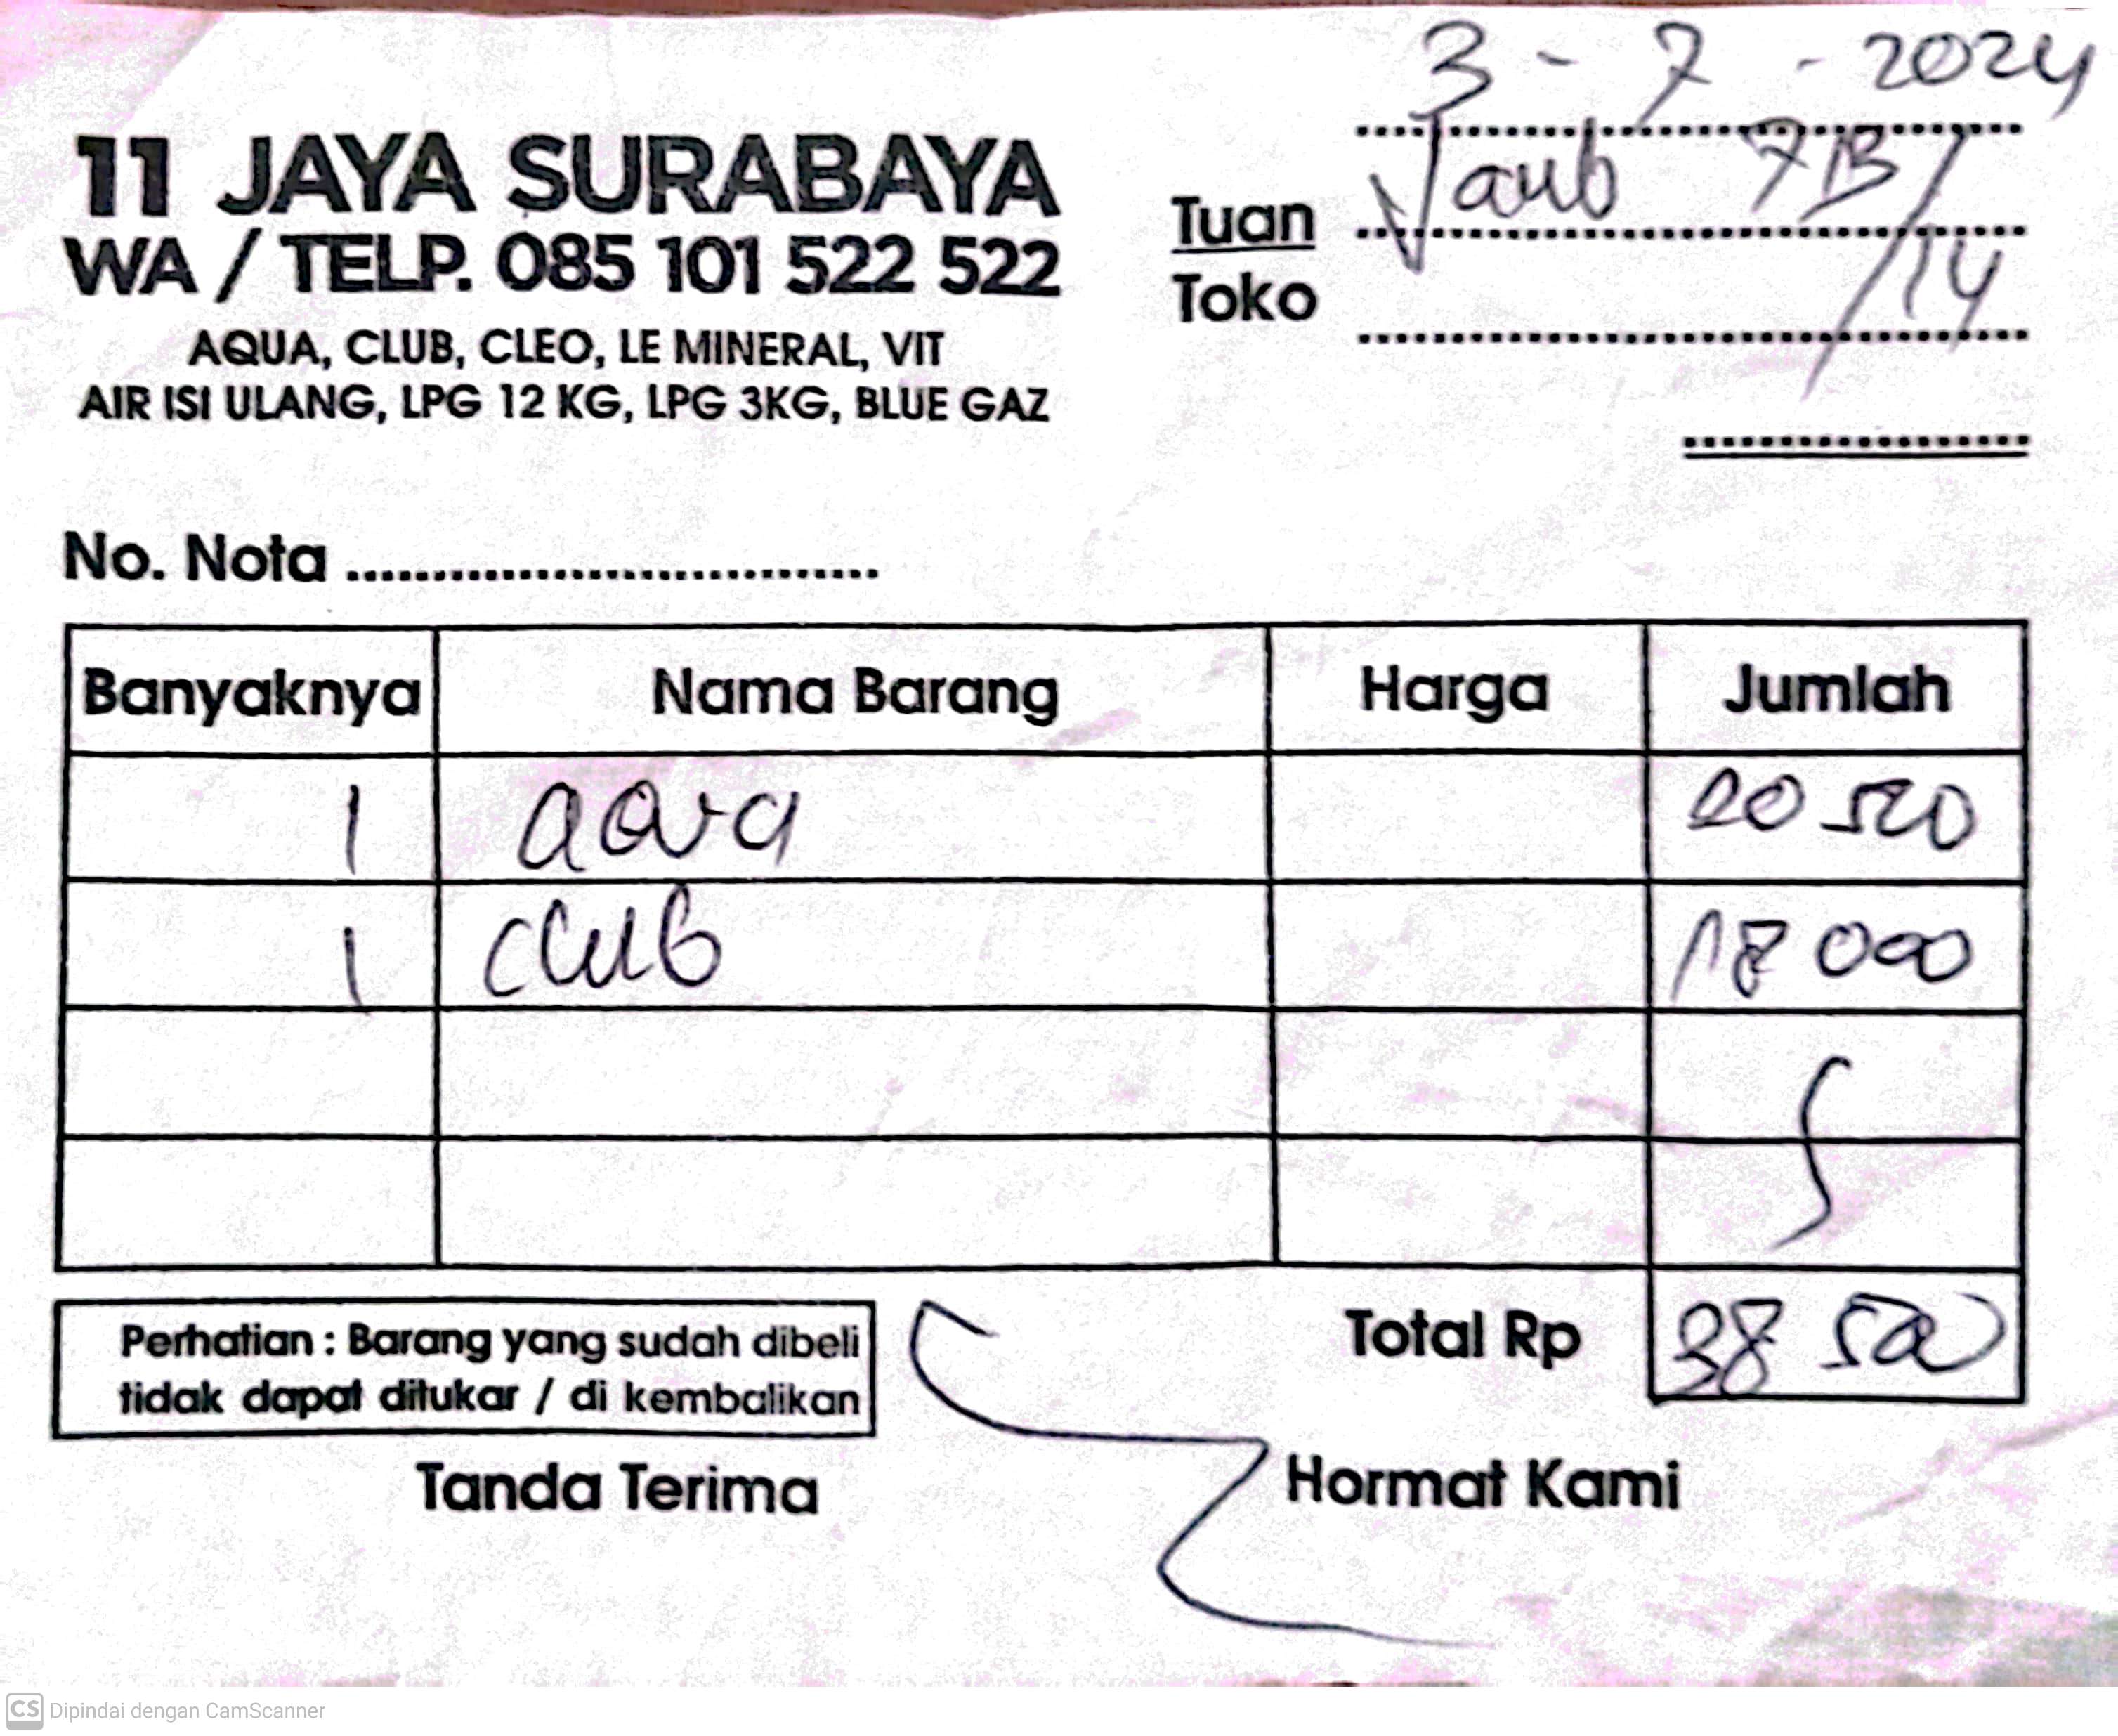 3 - 7 - 2024
11 JAYA SURABAYA
WA / TELP. 085 101 522 522
AQUA, CLUB, CLEO, LE MINERAL, VIT
AIR ISI ULANG, LPG 12 KG, LPG 3KG, BLUE GAZ
Tuan 7B/
Toko 14
No. Nota
Banyaknya Nama Barang Harga Jumlah
1 aqua 20 500
1 club 18 000
Total Rp 38 500
Perhatian : Barang yang sudah dibeli
tidak dapat ditukar / di kembalikan
Tanda Terima Hormat Kami
CS Dipindai dengan CamScanner